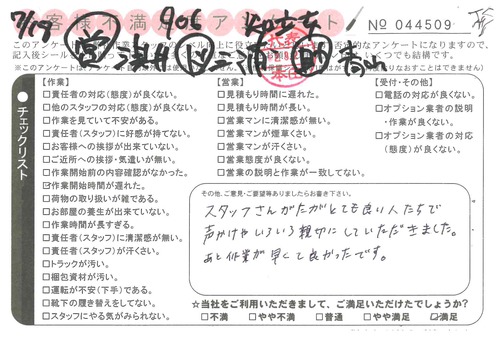 7/19 906 知立市
お客様不満足度アンケート
№ 044509
営 浅井 三浦 助
【作業】
□責任者の対応(態度)が良くない。
□他のスタッフの対応(態度)が良くない。
□作業を見ていて不安がある。
□責任者(スタッフ)に好感が持てない。
□お客様への挨拶が出来ていない。
□ご近所への挨拶・気遣いが無い。
□作業開始前の内容確認がなかった。
☑作業開始時間が遅れた。
□荷物の取り扱いが雑である。
□お部屋の養生が出来ていない。
□作業時間が長すぎる。
□責任者(スタッフ)に清潔感が無い。
□責任者(スタッフ)が汗くさい。
□トラックが汚い。
□梱包資材が汚い。
□運転が不安(下手)である。
□靴下の履き替えをしてない。
□スタッフにやる気がみられない。
【営業】
□見積もり時間に遅れた。
□見積もり時間が長い。
□営業マンに清潔感が無い。
□営業マンが煙草くさい。
□営業マンが汗くさい。
□営業態度が良くない。
□営業の説明と作業が一致してない。
【受付・その他】
□電話の対応が良くない。
□オプション業者の説明
・作業が良くない。
□オプション業者の対応
(態度)が良くない。
チェックリスト
その他、ご意見・ご要望等ありましたらお書き下さい。
スタッフさんがたがとても良い人たちで
声かけやいろいろ親切にしていただきました。
あと作業が早くて良かったです。
☆当社をご利用いただきまして、ご満足いただけたでしょうか?
□不満 □やや不満 □普通 □やや満足 ☑満足